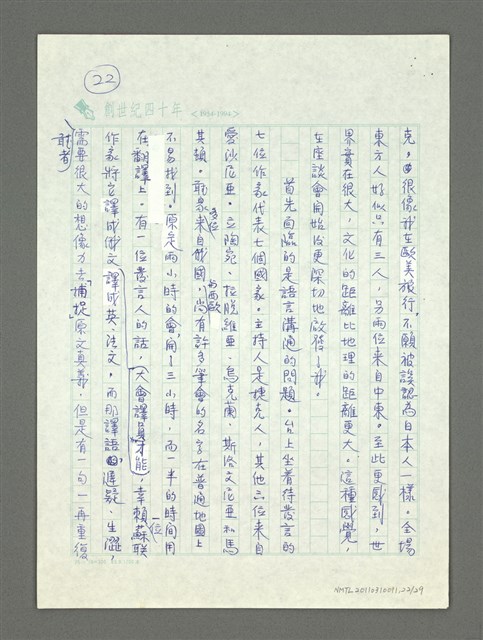 22
創世紀四十年 <1954-1994>
克，很像我在歐美旅行，不願被誤認為日本人一樣。全場
東方人好似只有三人，另兩位來自中東。至此更感到，世
界實在很大，文化的距離比地理的距離更大。這種感覺，
在座談會開始後更深切地啟發了我。
首先面臨的是語言溝通的問題。台上坐着待發言的
七位作家代表七個國家。主持人是捷克人，其他六位來自
愛沙尼亞、立陶宛、拉脫維亞、烏克蘭、斯洛文尼亞和馬
其頓。聽眾來自多位國，尚有許多筆會的名字在普通地圖上
與西歐
不易找到。原是兩小時的會，開了三小時，而一半的時間用
在翻譯上。有一位發言人的話，大會譯員才能，幸賴蘇聯一位
作家將它譯成俄文，譯成英、法文，而那譯語，遲疑、生澀，
需要很大的想像力去「捕捉」原文真義，但是有一句一再重復
聽者
NMTL20110310091_22/29